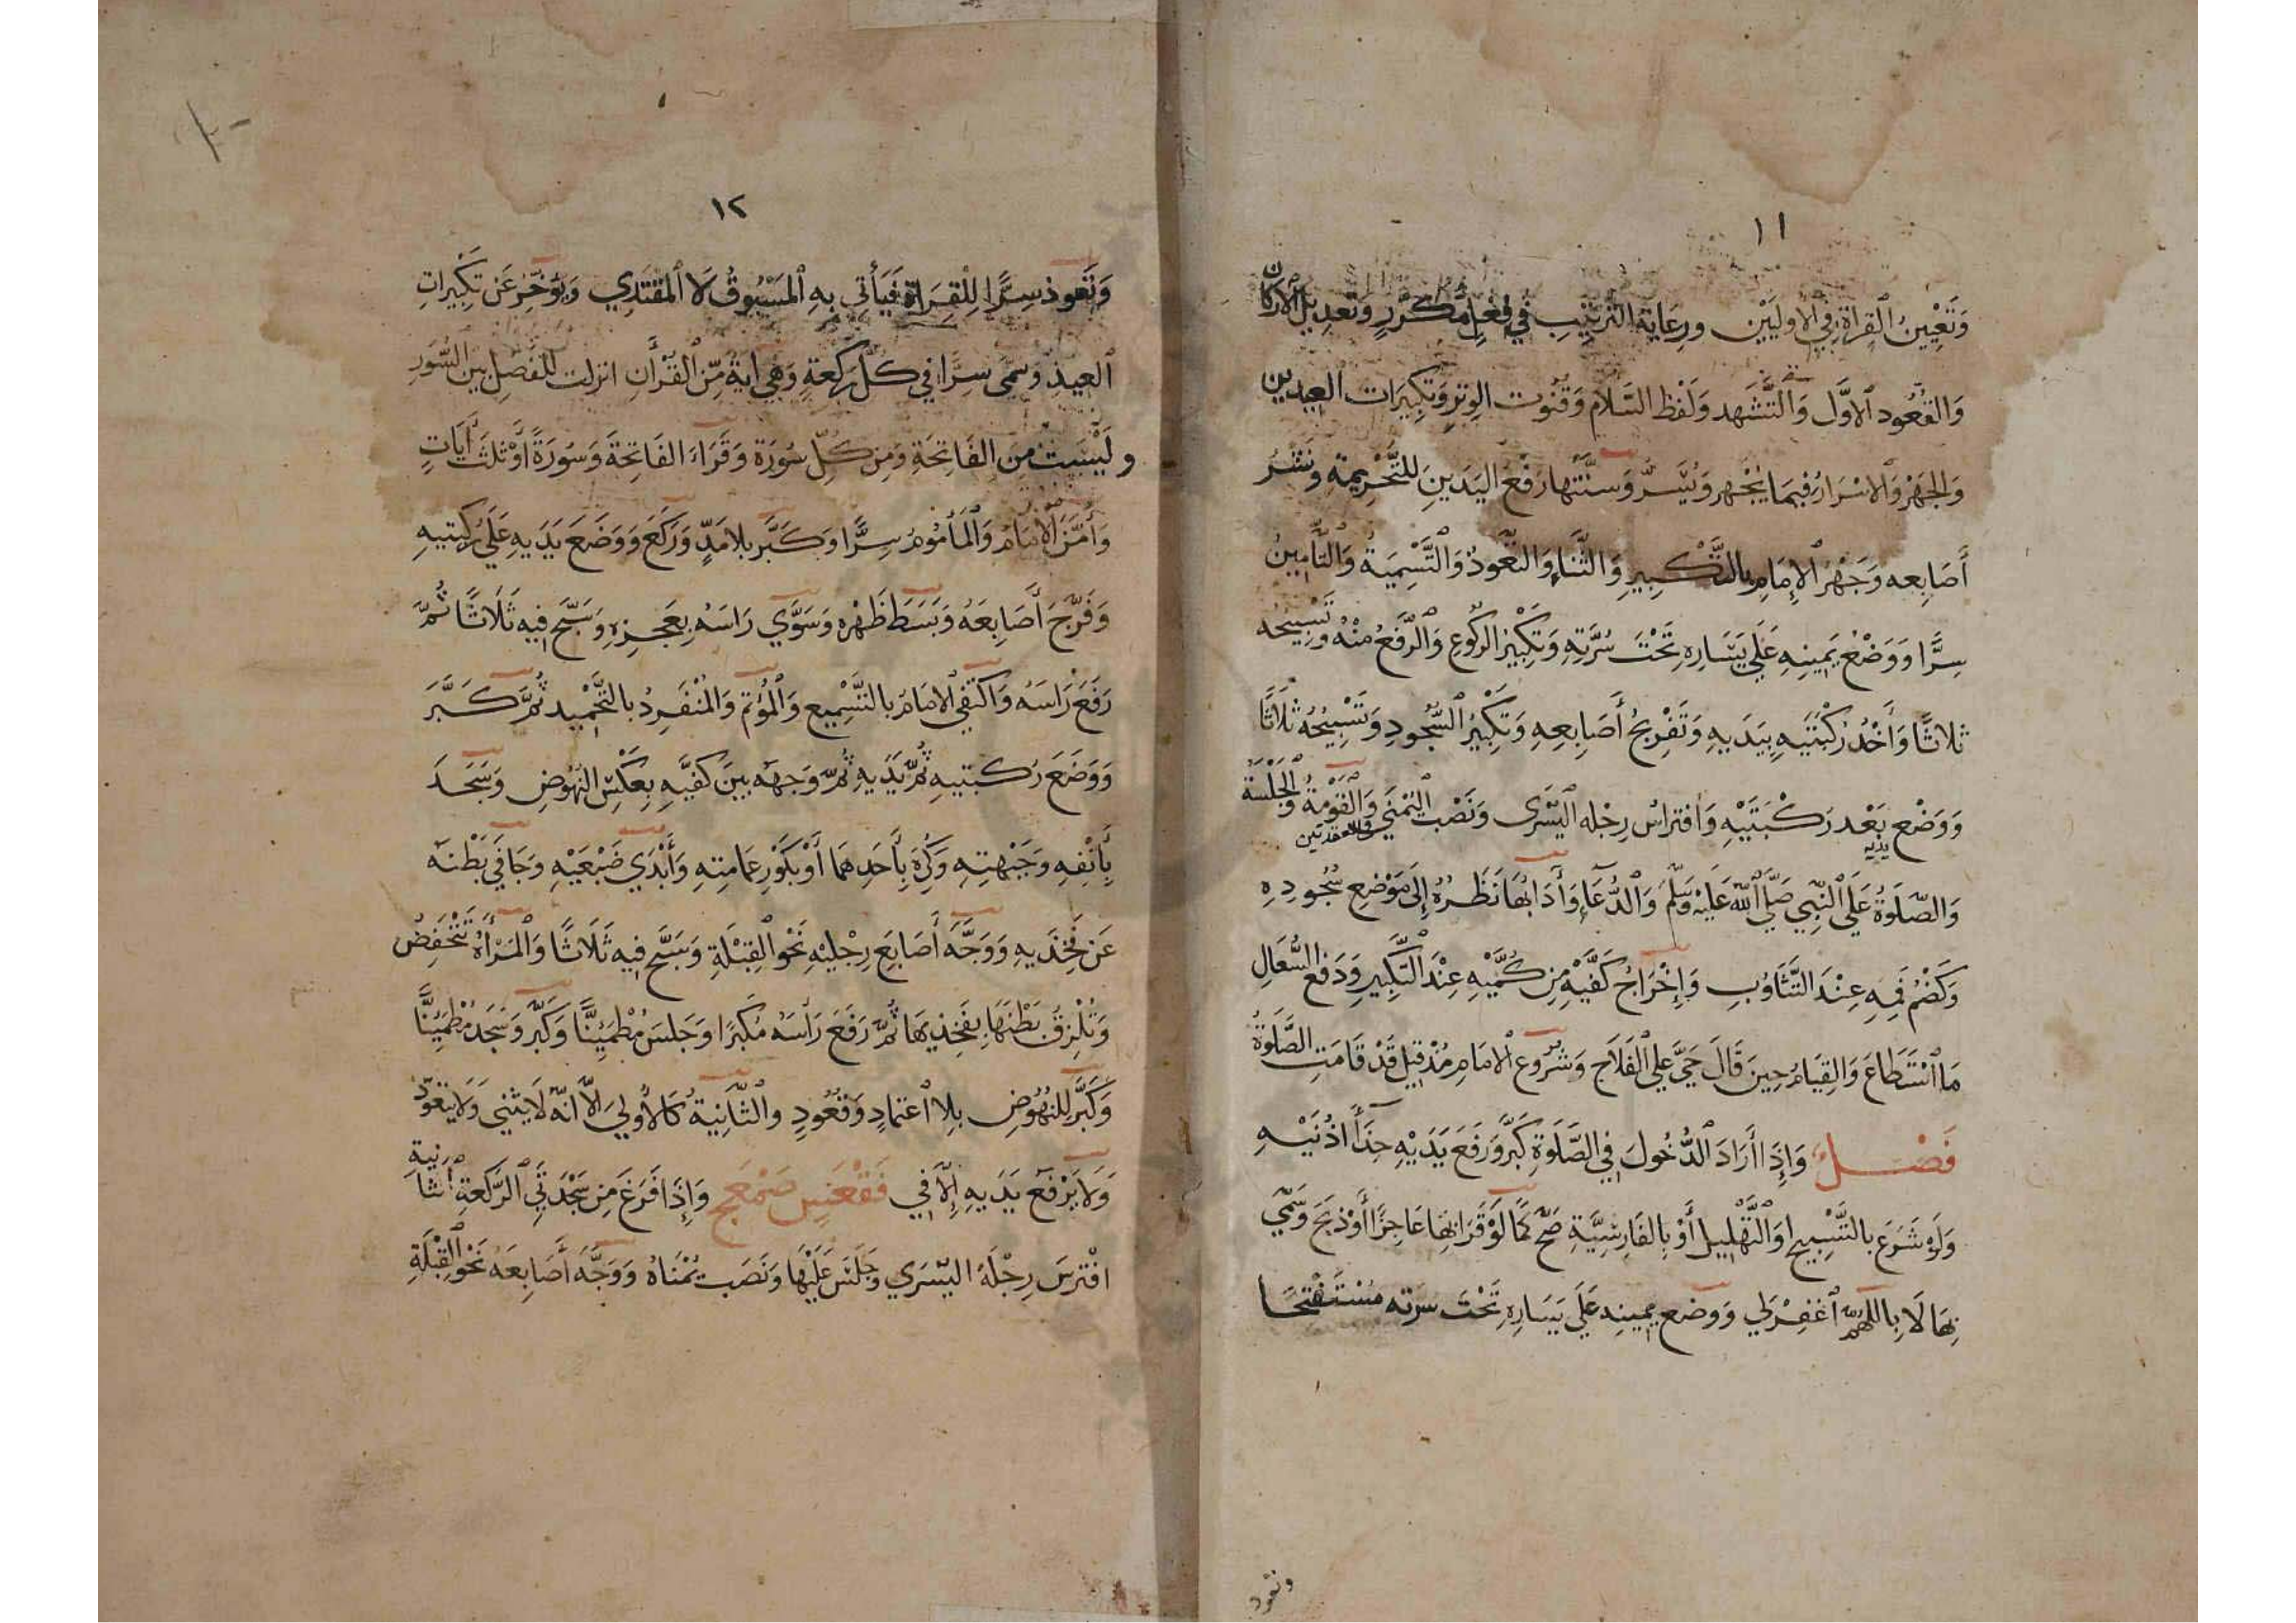 ١١
وَتَعْيِينُ الْقِرَاةِ فِي الْأُولَيَيْن وَرِعَايَةُ التَّرْتِيبِ فِي فِعْلٍ مُكَرَّرٍ وَتَعْدِيلُ الْأَرْكَان
وَالقُعُود الاَوَّل وَالتَّشَهد وَلَفْظ السَّلَام وَقُنُوت الوِترِ وَتَكبِيرَات العِيدين
وَالجَهْرُ وَالاسْرَارُ فِيمَا يُجْهر وَيُسَرُّ وَسُنَّتُها رَفْعُ اليَدَينِ لِلتَّحْرِيمَةِ وَنَشْرُ
أَصَابِعه وَجَهْرُ الإِمَامِ بِالتَّكْبِيرِ وَالثَّنَاءِ وَالتَّعَوذ وَالتَّسْمِيَةُ وَالتَّأمِينُ
سِرًّا وَوَضْعُ يَمِينِهِ عَلَي يَسَارِهِ تَحْتَ سُرَّتِهِ وَتَكبِيرُ الرُّكُوعِ وَالرَّفعُ مِنْهُ وَتَسْبِيحُه
ثَلاثًا وَأَخْذُ رُكْبَتَيهِ بِيَدَيهِ وَتَفْرِيجُ أَصَابِعِهِ وَتَكبِيرُ السُّجُودِ وَتَسْبِيحُهُ ثَلَاثًا
وَوَضْع يَدَيْه بَعْد رَكْبَتَيْهِ وَافتِرَاش رِجْله اليُسْرَى وَنَصْب اليُمْنَي فى القعدتين وَالقَوْمَةُ وَالجَلْسَةُ
وَالصَّلَوةُ عَلَي النَّبِي صَلَّي اللّٰه عَلَيْهِ وَسَلَّمَ وَالدُّعَاءُ وَأدَابُهَا نَظَرُهُ إِلَى مَوْضِع سُجُودِهِ
وَكَضْمُ فَمِهِ عِنْدَ التَّثَاوُبِ وَإِخْرَاجُ كَفَّيْهِ مِن كُمَّيْهِ عِنْدَ التَّكبِيرِ وَدَفعُ السُّعَالِ
مَا اسْتَطَاعَ وَالقِيَامُ حِينَ قَالَ حَيَّ عَلي الفَلَاحِ وَشُرُوع الامَامِ مُذْ قِيلَ قَدْ قَامَتِ الصَّلَوةُ
فَصْل وَإِذَا أرَادَ الدُّخُولَ فِي الصَّلَوةِ كَبَّرَ وَرَفَعَ يَدَيْهِ حِذَاء اُذُنَيْهِ
وَلَو شَرَعَ بِالتَّسْبِيحِ اوَ التَّهْلِيلِ أَوْ بِالفَارِسِيَّةِ صَحَّ كَمَا لَوْ قَرَا بِهَا عَاجِزًا أَوْ ذَبَحَ وَسَمّي
بِهَا لَا بِاللّٰهُمَّ اغْفِرْ لِي وَوَضع يمِينِهِ عَلَي يَسَارِهِ تَحْتَ سُرته مُسْتَفْتِحًا
وتعوذ
١٢
وَتَعوذ سِرًّا لِلْقِرَاةِ فَيَأتِي بِهِ المَسْبُوقُ لَا المُقْتَدِي وَيُؤَخِّرُ عَن تَكْبِيرَاتِ
العِيدِ وَسَمَّى سِرًّا فِي كُلِّ رَكْعَةٍ وَهِي ايَةٌ مِّنَ القُرْأَنِ انزلت لِلْفَصْلِ بَيْن السُّوَرِ
و لَيْسَتْ مِنَ الفَاتِحَةِ وَمِن كُلِّ سُورَة وَقَرَاءَ الفَاتِحَةَ وَسُورَةً أَوْ ثَلَثَ أيَاتٍ
وَأمَّنَ الإِمَامُ وَالمَأمُومُ سِرًّا وَكَبَّر بِلَا مَدٍّ وَرَكَعَ وَوَضَعَ يَدَيهِ عَلَي رُكبتيهِ
وَفَرَّجَ أَصَابِعَهُ وَبَسَطَ ظَهْره وَسَوَّي رَاسَهُ بِعَجزِهِ وَسَبَّحَ فِيهِ ثَلَاثًا ثُمَّ
رَفَعَ رَاسَهُ وَاكتَفي الامَامُ بِالتَّسْمِيع وَالمُؤتم وَالمُنْفَرِدُ بِالتَّحْمِيد ثُمَّ كَبَّرَ
وَوَضَعَ رُكبَتيهِ ثُمَّ يَدَيهِ ثُمَّ وَجهَه بَينَ كَفَّيهِ بِعَكْسِ النُّهُوضِ وَسَجَدَ
بِأَنْفِهِ وَجَبْهتِهِ وَكُرِهَ بِأَحَدِهمَا أَوْ بَكَوْرِ عِمَامتِهِ وَأَبْدَي ضَبْعَيْهِ وَجَافَى بَطْنَه
عَن فَخِذَيهِ وَوَجَّهَ أَصَابِعَ رِجْلَيْهِ نَحْوَ القِبْلَةِ وَسَبَّح فِيه ثَلَاثًا وَالمَرْأَةُ تَنْخَفِضُ
وَتُلْزِقُ بَطْنَهَا بِفَخِذِيهَا ثُمَّ رَفَعَ رَأسَهُ مُكبرًا وَجَلسَ مُطْمَئِنًّا وَكَبَّر وَسَجَد مُطْمَئِنًّا
وَكَبَّر لِلنُّهُوضِ بِلا اعتمادٍ وَقُعُودٍ والثَّانِيَةُ كَالأُولي اِلّا انَّه لَا يَثني وَلَا يَتَعَوَّذ
وَلَا يَرْفَعُ يَدَيهِ إِلَّا فِي فَقْعَس صَمْعَج وَإِذَا فَرَغَ مِن سَجْدَتَي الرَّكْعَةِ الثانية
افْتَرَسَ رِجْلَهُ اليُسْرَي وَجَلَسَ عَلَيْهَا وَنَصَب يُمْنَاهُ وَوَجَّهَ أَصَابِعَهُ نَحْوَ القِبْلَةِ